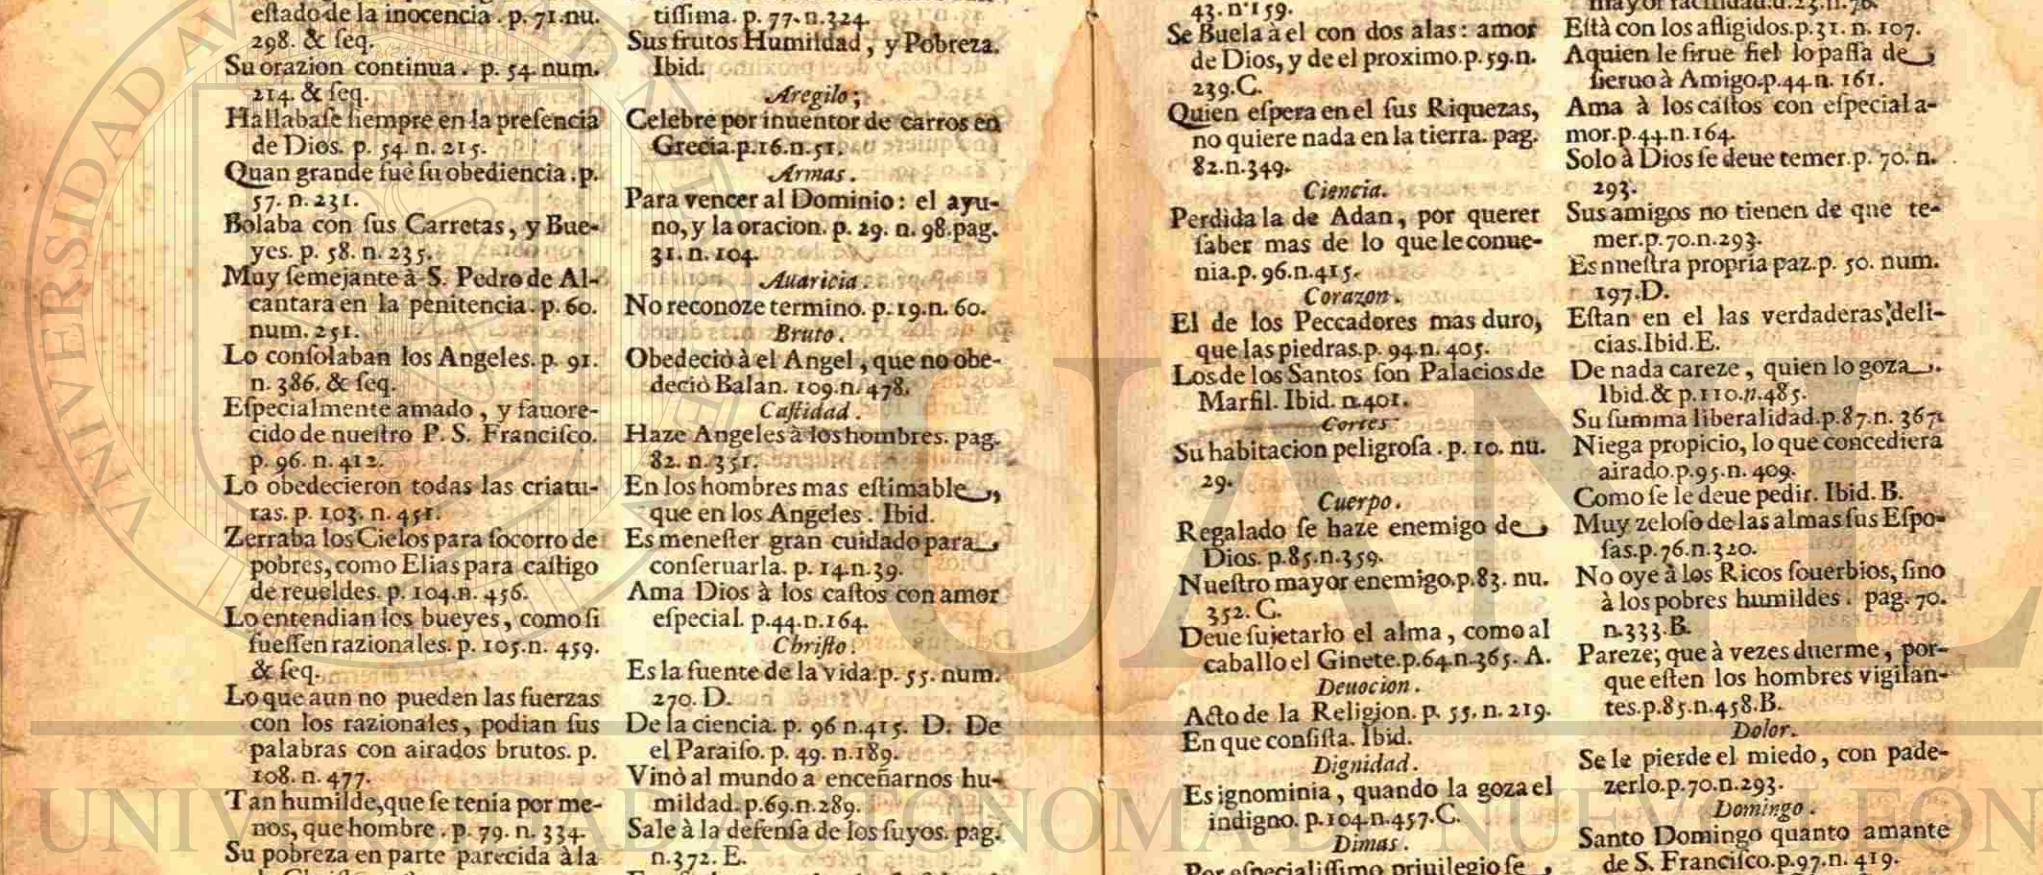 estado de la inocencia. p. 71. nu.
298. & seq.
Su orazion continua. p. 54. num.
214. & seq.
Hallabase siempre en la presencia
de Dios. p. 54. n. 215.
Quan grande fuè su obediencia. p.
57. n. 231.
Bolaba con sus Carretas, y Bue-
yes. p. 58. n. 235.
Muy semejante à S. Pedro de Al-
cantara en la penitencia. p. 60.
num. 251.
Lo consolaban los Angeles. p. 91.
n. 386. & seq.
Especialmente amado, y fauore-
cido de nuestro P. S. Francisco.
p. 96. n. 412.
Lo obedecieron todas las criatu-
ras. p. 103. n. 451.
Zerraba los Cielos para socorro de
pobres, como Elias para castigo
de reueldes. p. 104. n. 456.
Lo entendian los bueyes, como si
fuessen razionales. p. 105. n. 459.
& seq.
Lo que aun no pueden las fuerzas
con los razionales, podian sus
palabras con airados brutos. p.
108. n. 477.
Tan humilde, que se tenia por me-
nos, que hombre. p. 79. n. 334.
Su pobreza en parte parecida à la
tissima. p. 77. n. 324.
Sus frutos Humildad, y Pobreza.
Ibid.
Aregilo;
Celebre por inuentor de carros en
Grecia. p. 16. n. 51.
Armas.
Para vencer al Dominio: el ayu-
no, y la oracion. p. 29. n. 98. pag.
31. n. 104.
Auaricia.
No reconoze termino. p. 19. n. 60.
Bruto.
Obedeciò à el Angel, que no obe-
deciò Balan. 109. n. 478.
Castidad.
Haze Angeles à los hombres. pag.
82. n. 351.
En los hombres mas estimable,
que en los Angeles. Ibid.
Es menester gran cuidado para
conseruarla. p. 14. n. 39.
Ama Dios à los castos con amor
especial. p. 44. n. 164.
Christo.
Es la fuente de la vida. p. 55. num.
270. D.
De la ciencia. p. 96 n. 415. D. De
el Paraiso. p. 49. n. 189.
Vinò al mundo a enceñarnos hu-
mildad. p. 69. n. 289.
Sale à la defensa de los suyos. pag.
n. 372. E.
43. n. 159.
Se Buela à el con dos alas: amor
de Dios, y de el proximo. p. 59. n.
239. C.
Quien espera en el sus Riquezas,
no quiere nada en la tierra. pag.
82. n. 349.
Ciencia.
Perdida la de Adan, por querer
saber mas de lo que le conue-
nia. p. 96. n. 415.
Corazon.
El de los Peccadores mas duro,
que las piedras. p. 94. n. 405.
Los de los Santos son Palacios de
Marfil. Ibid. n. 401.
Cortes
Su habitacion peligrosa. p. 10. nu.
29.
Cuerpo.
Regalado se haze enemigo de
Dios. p. 85. n. 359.
Nuestro mayor enemigo. p. 83. nu.
352. C.
Deue sujetarlo el alma, como al
caballo el Ginete. p. 64. n. 365. A.
Deuocion.
Acto de la Religion. p. 55. n. 219.
En que consista. Ibid.
Dignidad.
Es ignominia, quando la goza el
indigno. p. 104. n. 457. C.
Dimas.
Por especialissimo priuilegio se
mayor facilidad. d. 23. n. 76.
Està con los afligidos. p. 31. n. 107.
Aquien le sirue fiel lo passa de
sieruo à Amigo. p. 44. n. 161.
Ama à los castos con especial a-
mor. p. 44. n. 164.
Solo à Dios se deue temer. p. 70. n.
293.
Sus amigos no tienen de que te-
mer. p. 70. n. 293.
Es nnestra propria paz. p. 50. num.
197. D.
Estan en el las verdaderas deli-
cias. Ibid. E.
De nada careze, quien lo goza.
Ibid. & p. 110. n. 485.
Su summa liberalidad. p. 87. n. 367.
Niega propicio, lo que concediera
airado. p. 95. n. 409.
Como se le deue pedir. Ibid. B.
Muy zeloso de las almas sus Espo-
sas. p. 76. n. 320.
No oye à los Ricos souerbios, sino
à los pobres humildes. pag. 70.
n. 333. B.
Pareze; que à vezes duerme, por-
que esten los hombres vigilan-
tes. p. 85. n. 458. B.
Dolor.
Se le pierde el miedo, con pade-
zerlo. p. 70. n. 293.
Domingo.
Santo Domingo quanto amante
de S. Francisco. p. 97. n. 419.
UANL
UNIVERSIDAD AUTONOMA DE NUEVO LEON